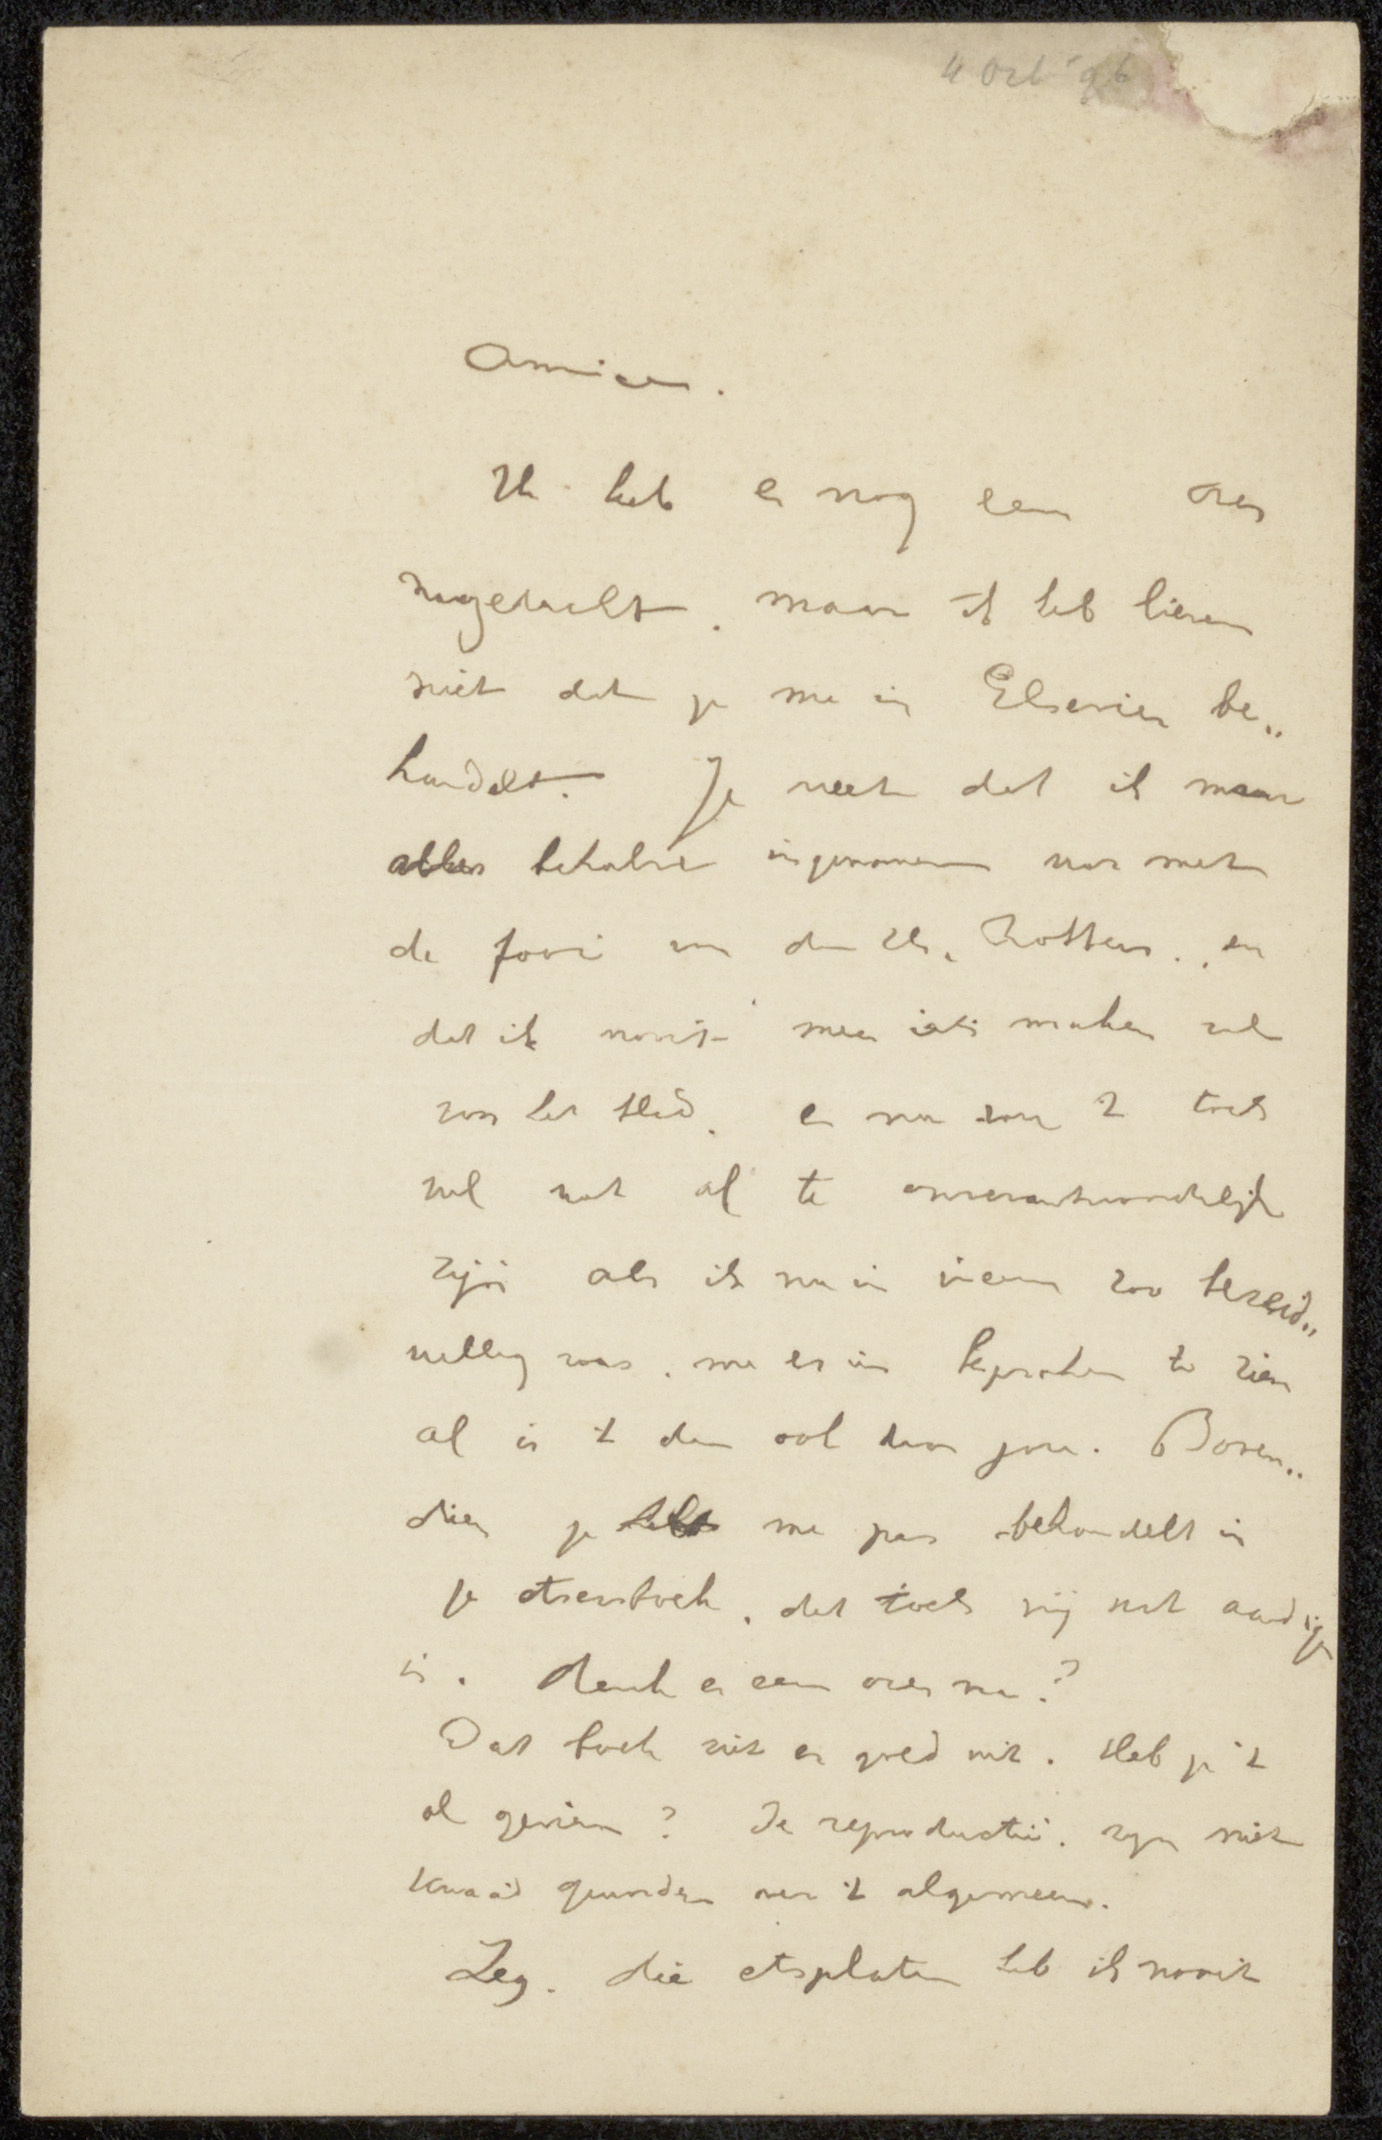 4 Oct '96
Amice.
Ik heb er nog eens over
nagedacht. maar ik heb liever
niet dat je me in Elsevier be„
handelt. Je weet dat ik maar
alles behalve ingenomen was met
de van den Hr. en
dat ik nooit meer iets maken zal
voor het blad. en nu zou 't toch
wel wat al te onverantwoordelijk
zijn als ik nu in eens zoo bereid„
willig was. me er in besproken te zien
al is 't dan ook door jou. Boven„
dien je me pas behandelt in
je etsersboek. dat toch vrij wat aardiger
is. denk er eens over na?
Dat boek ziet er goed uit. Heb je 't
al gezien? De reproductie's. zijn niet
kwaad geworden over 't algemeen.
Zeg. die etsplaten heb ik nooit